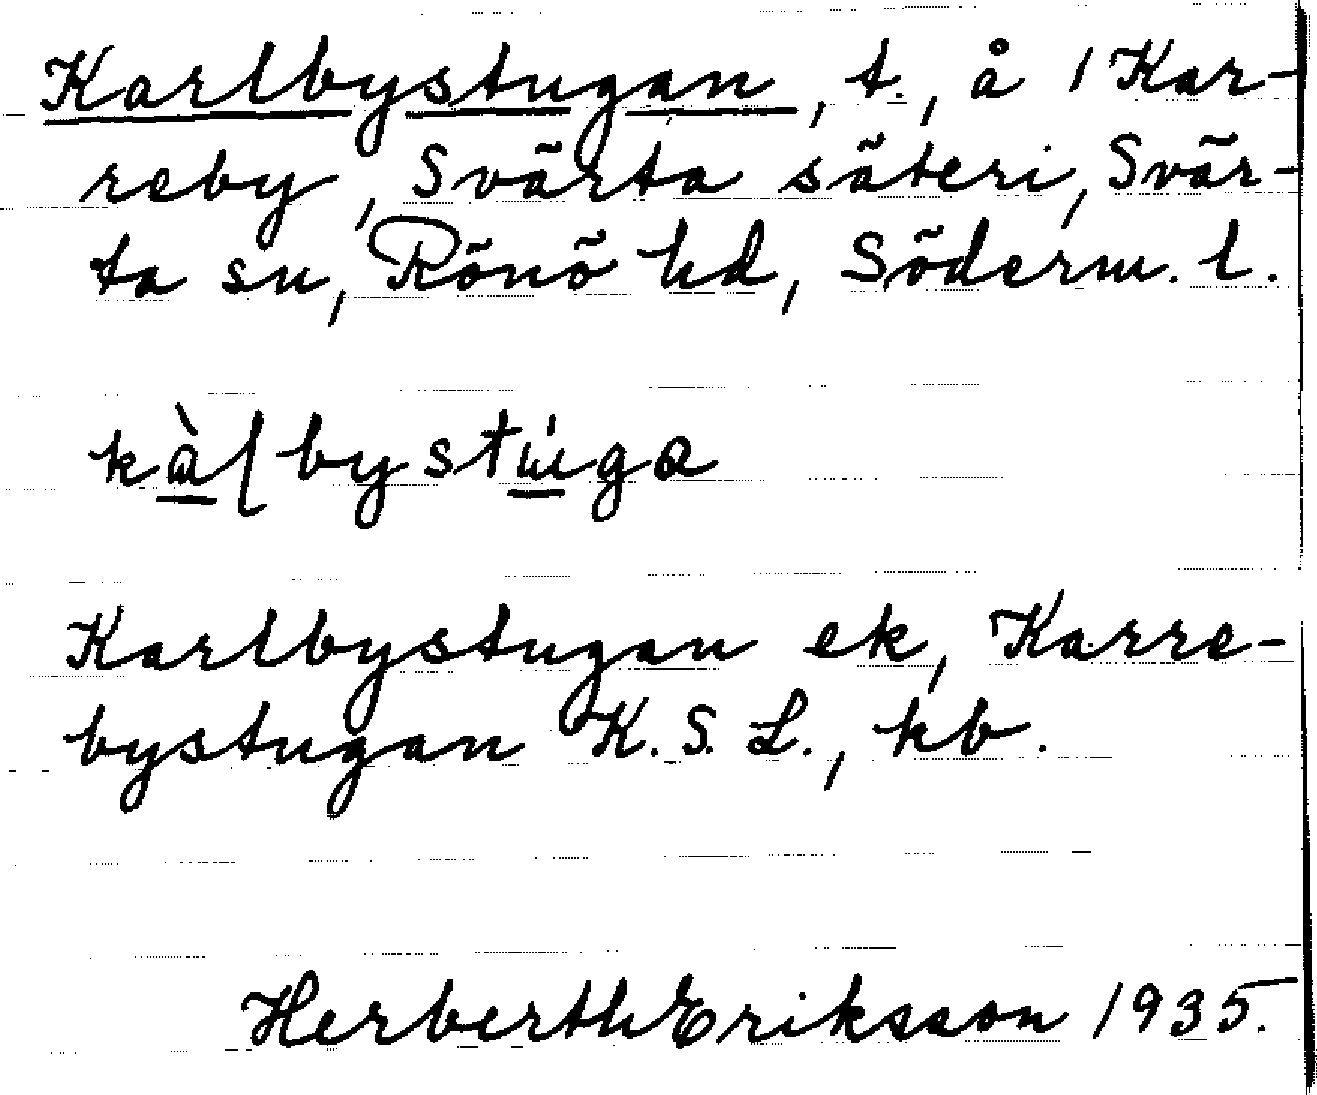 Karlbystugan, t., å 1 Kar-
reby, Svärta säteri, Svär-
ta sn, Rönö hd, Söderm. l.
kàlbystúga
Karlbystugan ek, Karre-
bystugan K. S. L., kb.
Herberth Eriksson 1935.